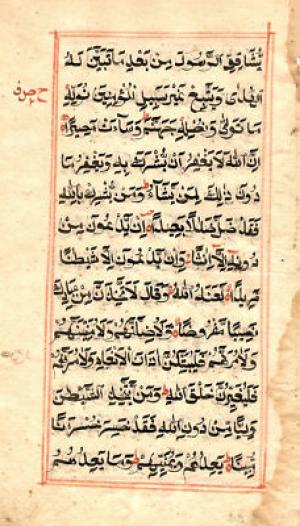 يُشَاقِقِ الرَّسُولَ مِنْ بَعْدِ مَا تَبَيَّنَ لَهُ
الْهُدَى وَيَتَّبِعْ غَيْرَ سَبِيلِ الْمُؤْمِنِينَ نُوَلِّهِ
مَا تَوَلَّى وَنُصْلِهِ جَهَنَّمَ وَسَاءَتْ مَصِيرًا
اِنَّ اللَّهَ لَا يَغْفِرُ اَنْ يُشْرَكَ بِهِ وَيَغْفِرُ مَا
دُونَ ذَلِكَ لِمَنْ يَشَاءُ وَمَنْ يُشْرِكْ بِاللَّهِ
فَقَدْ ضَلَّ ضَلَالًا بَعِيدًا اِنْ يَدْعُونَ مِنْ
دُونِهِ اِلَّا اِنَاثًا وَاِنْ يَدْعُونَ اِلَّا شَيْطَنًا
مَرِيدًا لَعَنَهُ اللَّهُ وَقَالَ لَاَتَّخِذَنَّ مِنْ عِبَادِكَ
نَصِيبًا مَفْرُوضًا وَلَاُضِلَّنَّهُمْ وَلَاُمَنِّيَنَّهُمْ
وَلَاَمُرَنَّهُمْ فَلَيُبَتِّكُنَّ اذَانَ الْاَنْعَامِ وَلَاَمُرَنَّهُمْ
فَلَيُغَيِّرُنَّ خَلْقَ اللَّهِ وَمَنْ يَتَّخِذِ الشَّيْطَنَ
وَلِيًّا مِنْ دُونِ اللَّهِ فَقَدْ خَسِرَ خُسْرَانًا
مُبِينًا يَعِدُهُمْ وَيُمَنِّيهِمْ وَمَا يَعِدُهُمُ